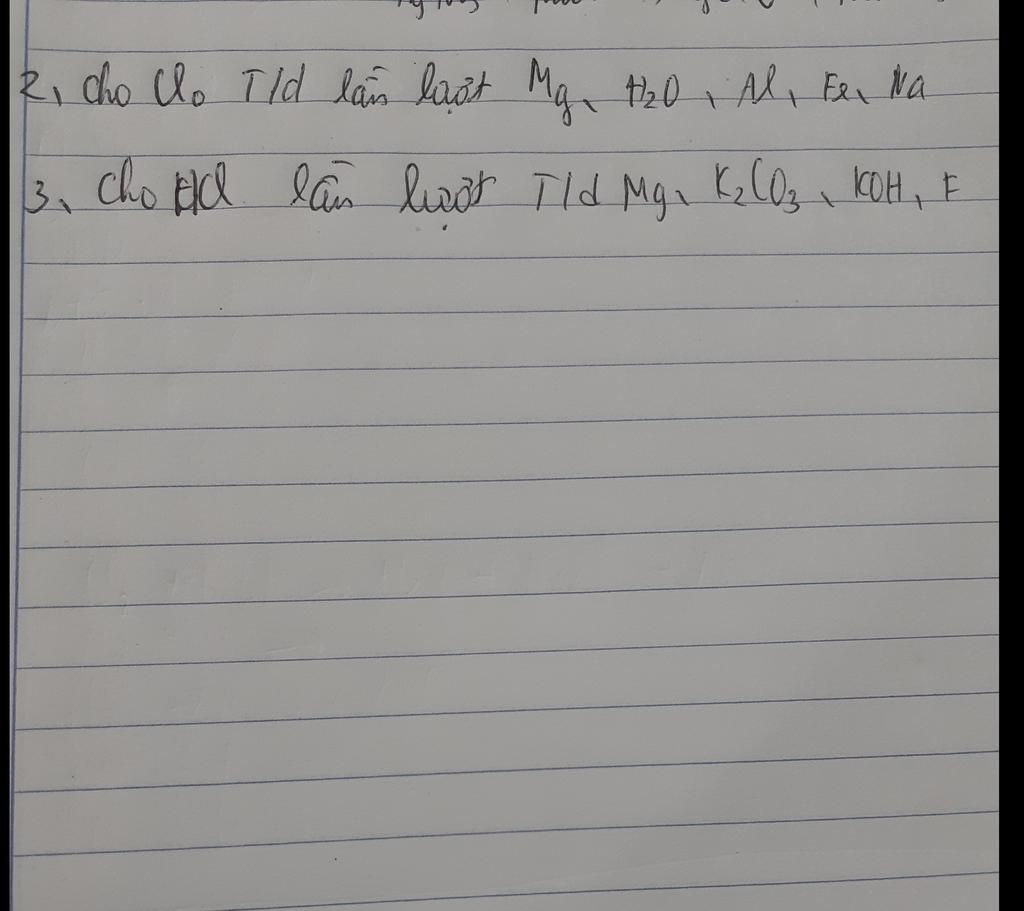 2, Cho Cl₂ T/d lần lượt Mg, H₂O, Al, Fe, Na
3, Cho HCl lần lượt T/d Mg, K₂CO₃, KOH, F